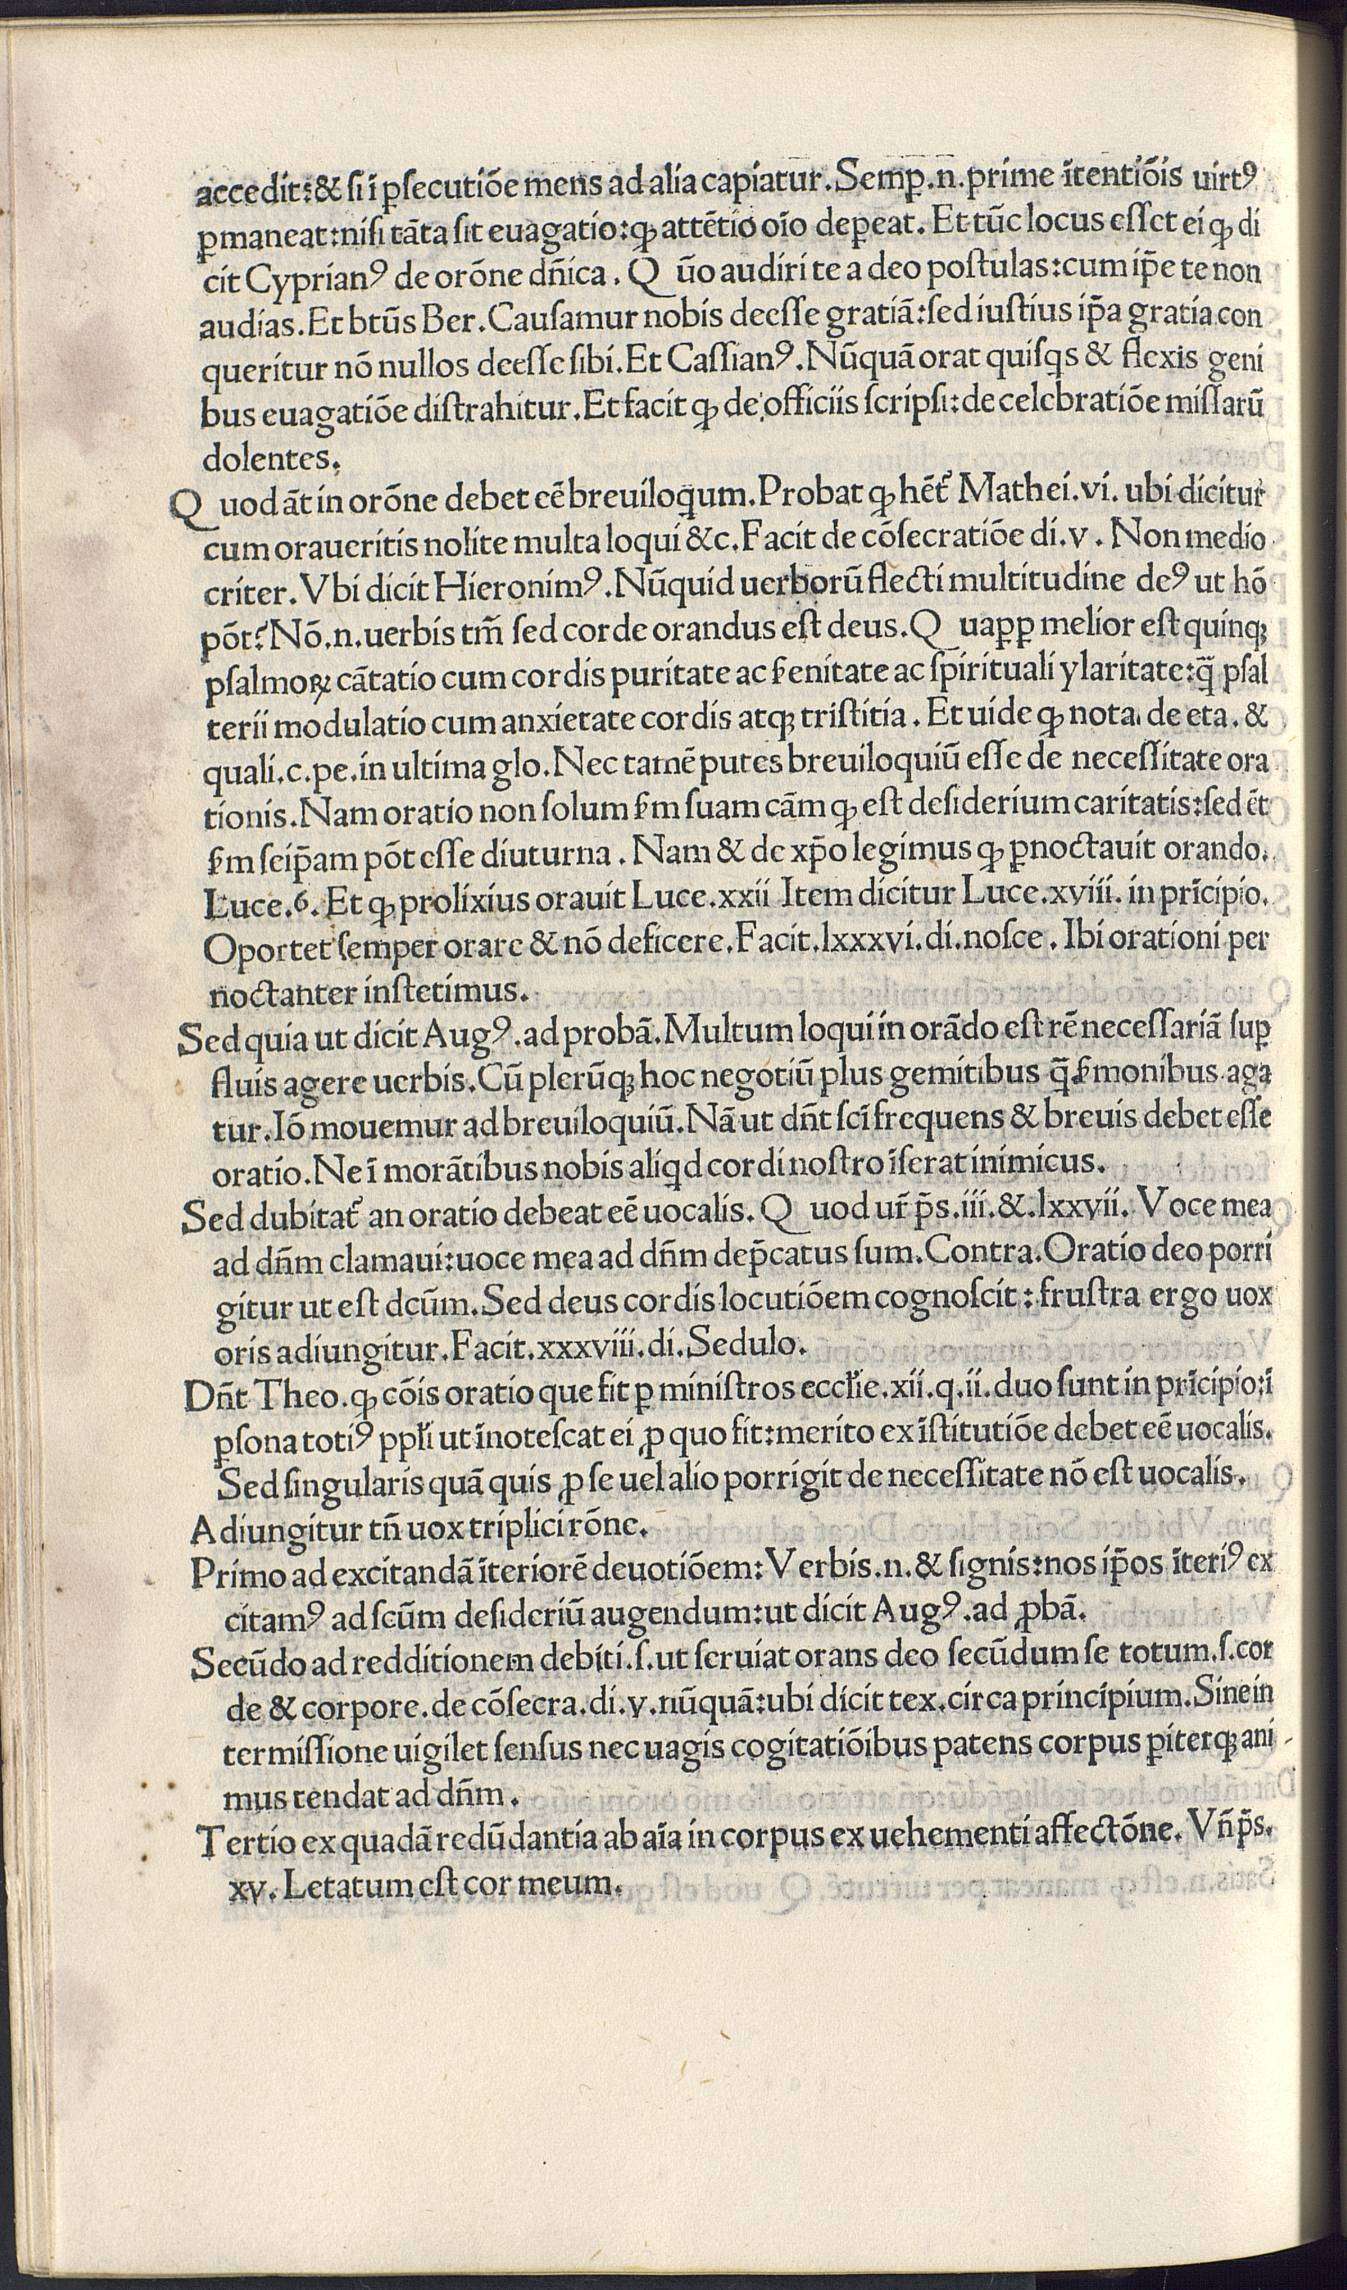 accedit:& si ī ꝑsecutiōe mens ad alia capiatur.Semꝑ.n.prime ītentiōis uirtꝰ
ꝑmaneat:nisi tāta sit euagatio:ꝙ attētio oīo depereat.Et tūc locus esset ei ꝙ di
cit Cyprianꝰ de orōne dn̄ica. Q ūo audiri te a deo postulas:cum ip̄e te non
audias.Et btūs Ber.Causamur nobis deesse gratiā:sed iustius ip̄a gratia con
queritur nō nullos deesse sibi.Et Cassianꝰ.Nūquā orat quisqs & flexis geni
bus euagatiōe distrahitur.Et facit ꝙ de officiis scripsi:de celebratiōe missarū
dolentes.
Q uod āt in orōne debet eē breuiloqum.Probat ꝙ hēt᷑ Mathei.vi. ubi dicitur
cum oraueritis nolite multa loqui &c.Facit de cōsecratiōe di.v. Non medio
criter. Vbi dicit Hieronimꝰ.Nūquid uerborū flecti multitudine deꝰ ut hō
pōt?Nō.n.uerbis tm̄ sed corde orandus est deus.Q uaꝓp melior est quinqꝫ
psalmoꝝ cātatio cum cordis puritate ac ẜenitate ac spirituali ylaritate:q̄ psal
terii modulatio cum anxietate cordis atqꝫ tristitia. Et uide ꝙ nota. de eta. &
quali.c.pe.in ultima glo.Nec tamē putes breuiloquiū esse de necessitate ora
tionis.Nam oratio non solum ẜm suam cām ꝙ est desiderium caritatis:sed ēt
ẜm seip̄am pōt esse diuturna. Nam & de xp̄o legimus ꝙ ꝑnoctauit orando.
Luce.6. Et ꝙ prolixius orauit Luce.xxii Item dicitur Luce.xviii. in prīcipio.
Oportet semper orare & nō deficere.Facit.lxxxvi.di.nosce. Ibi orationi per
noctanter institimus.
Sed quia ut dicit Augꝰ.ad probā.Multum loqui in orādo est rē necessariā suꝑ
fluis agere uerbis.Cū plerūqꝫ hoc negotiū plus gemitibus q̄ ẜmonibus aga
tur.Iō mouemur ad breuiloquiū.Nā ut dn̄t scī frequens & breuis debet esse
oratio.Ne ī morātibus nobis aliqd cordi nostro īserat inimicus.
Sed dubitat᷑ an oratio debeat eē uocalis. Q uod ur̄ p̄s.iii.&.lxxvii. Voce mea
ad dn̄m clamaui:uoce mea ad dn̄m dep̄catus sum.Contra.Oratio deo porri
gitur ut est dcūm.Sed deus cordis locutiōem cognoscit:frustra ergo uox
oris adiungitur.Facit.xxxviii.di.Sedulo.
Dn̄t Theo.ꝙ cōis oratio que fit ꝑ ministros ecclīe.xii.q.ii.duo sunt in prīcipio:ī
ꝑsona totiꝰ pplī ut īnotescat ei ꝓ quo fit:merito ex īstitutiōe debet eē uocalis.
Sed singularis quā quis ꝓ se uel alio porrigit de necessitate nō est uocalis.
Adiungitur tn̄ uox triplici rōne.
Primo ad excitandā īteriorē deuotiōem: Verbis.n.& signis:nos ip̄os īteriꝰ ex
citamꝰ ad scūm desideriū augendum:ut dicit Augꝰ.ad ꝓbā.
Secūdo ad redditionem debiti.s.ut seruiat orans deo secūdum se totum.s.cor
de & corpore.de cōsecra.di.v.nūquā:ubi dicit tex.circa principium.Sine in
termissione uigilet sensus nec uagis cogitatiōibus patens corpus ꝑiterqꝫ ani
mus tendat ad dn̄m.
Tertio ex quadā redūdantia ab aīa in corpus ex uehementi affectōne. Vn̄ p̄s.
xv. Letatum est cor meum.